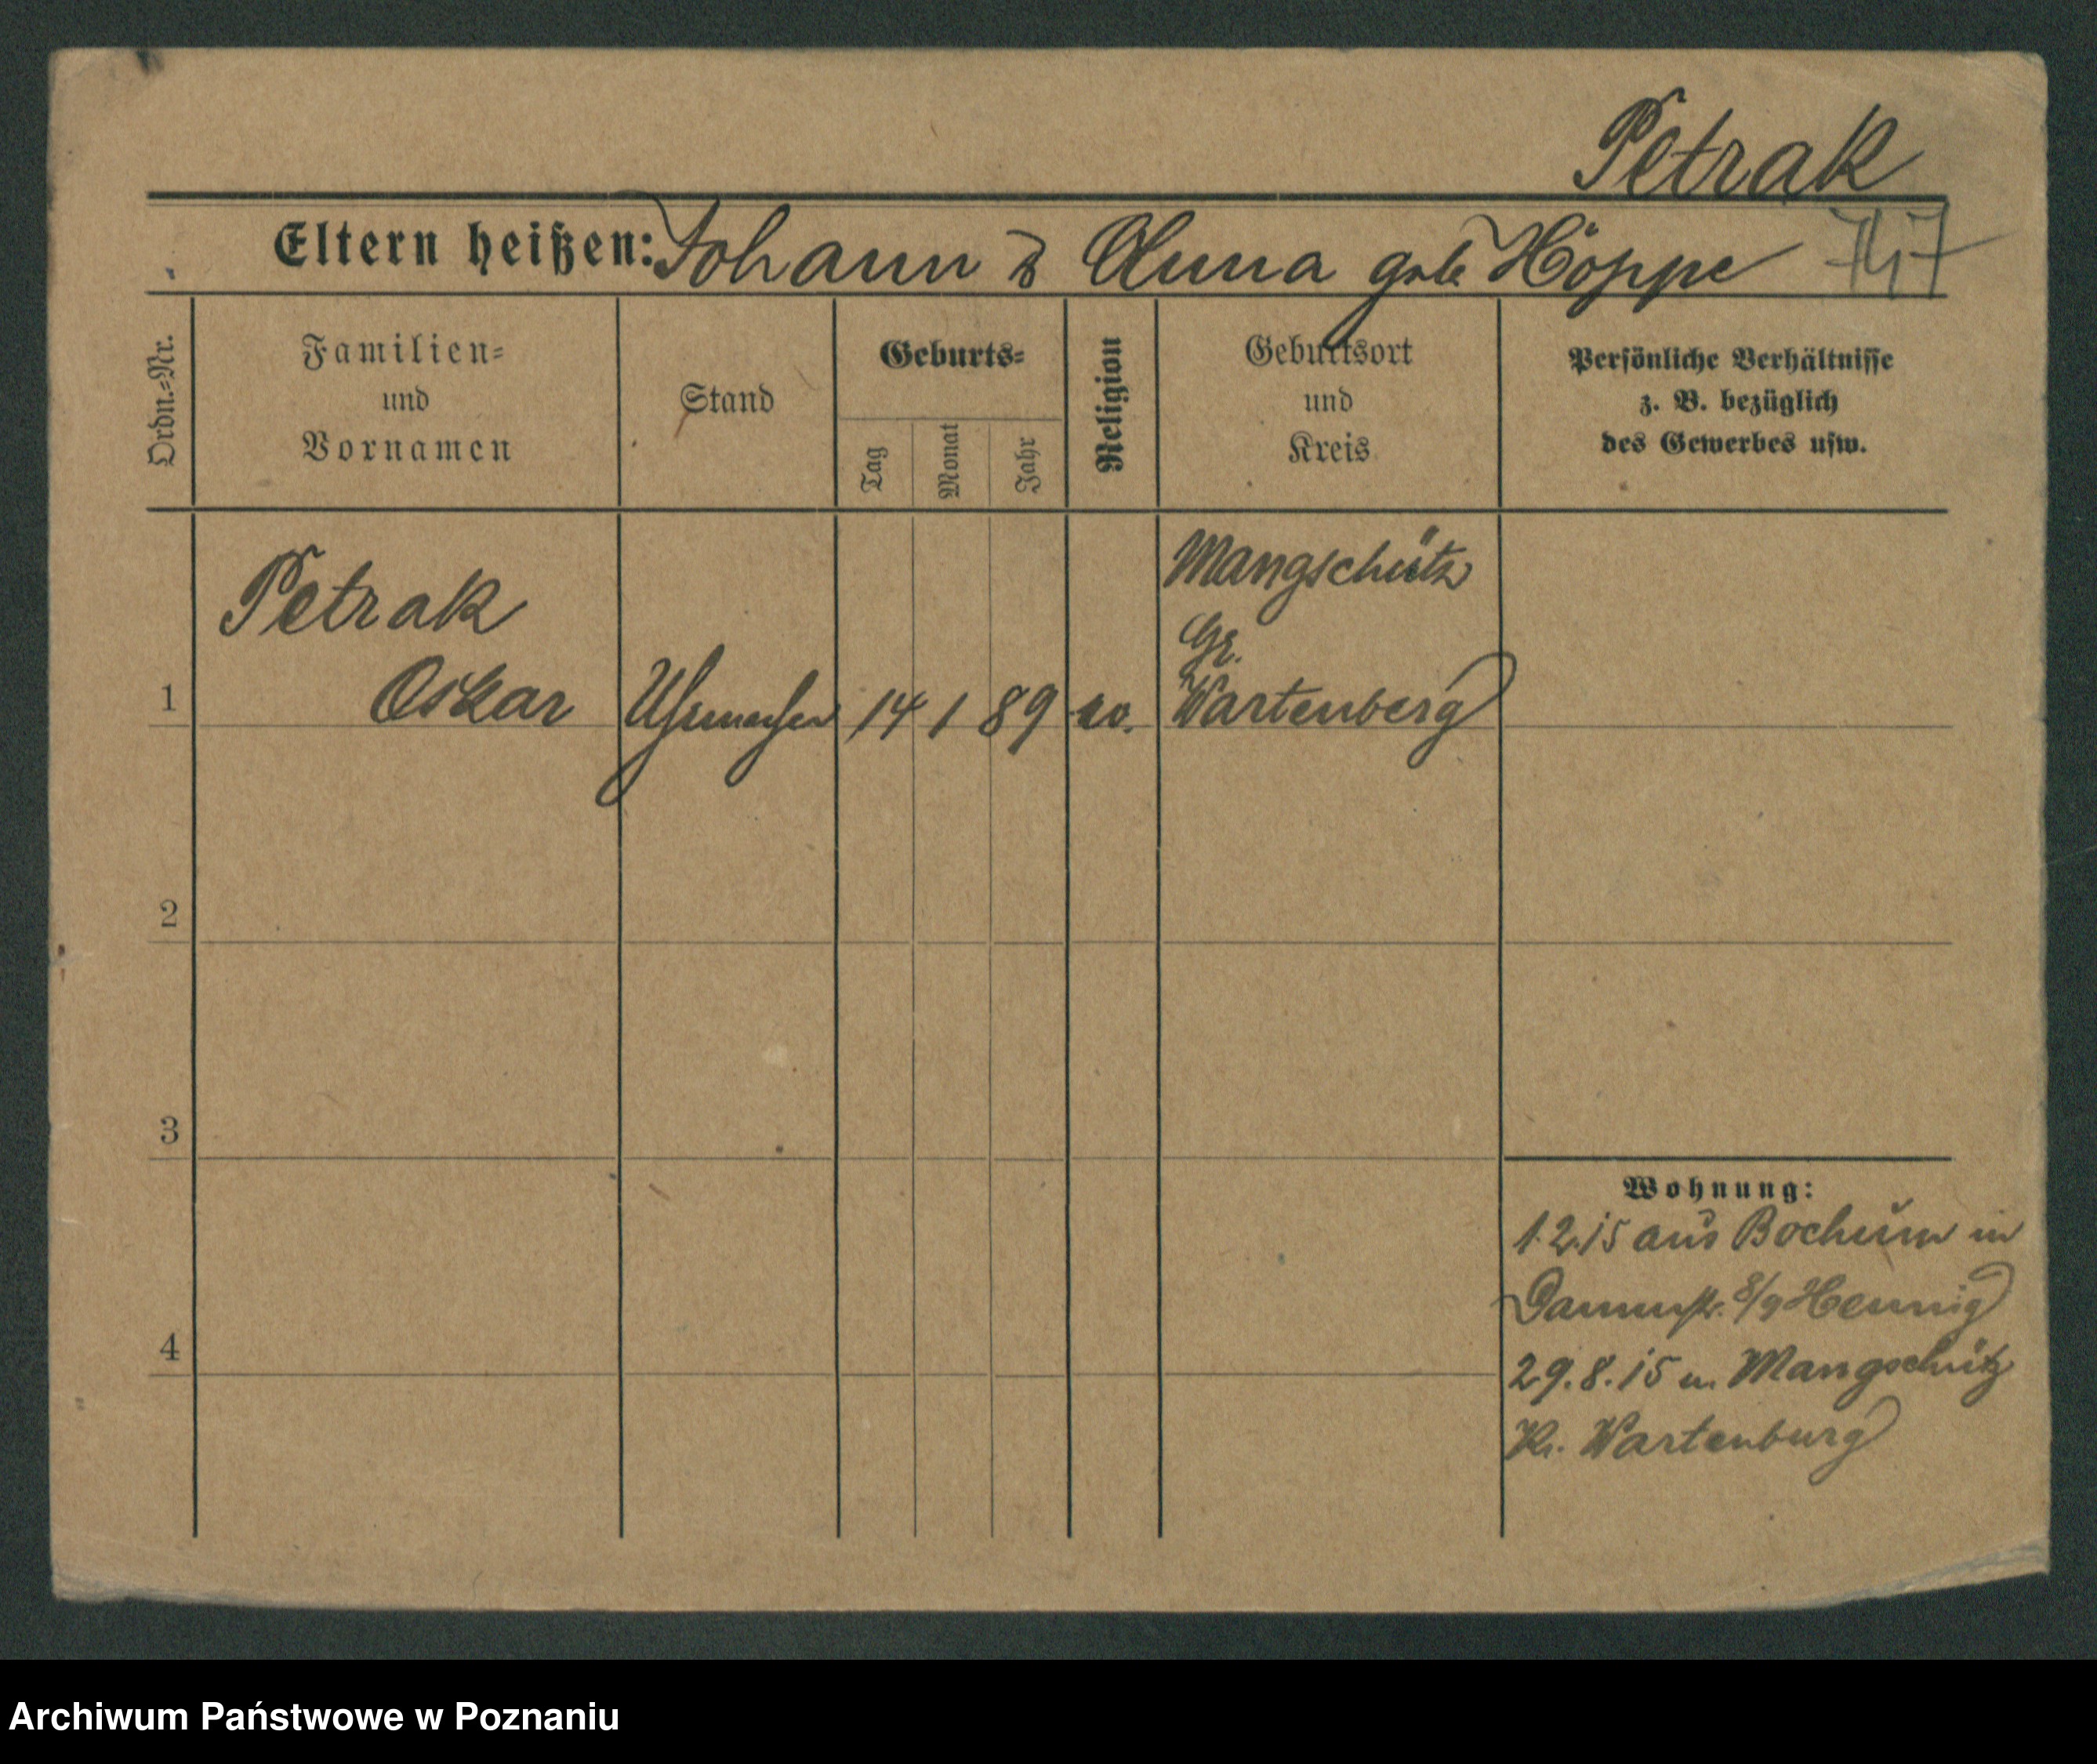 Petrak
Eltern heißen: Johann & Anna geb. Höppe 747
Ordn.=Nr.
Familien=
und
Vornamen
Stand
Geburts=
Tag
Monat
Jahr
Religion
Geburtsort
und
Kreis
Persönliche Verhältnisse
z. B. bezüglich
des Gewerbes usw.
Mangschütz
Petrak
Gr.
1 Oskar Uhrmacher 14 1 89 ev. Wartenberg
2
3
Wohnung:
1.2.15 aus Bochum in
Dammstr. 8/9 Hennig
4
29.8.15 n. Mangschütz
Kr. Wartenburg
Archiwum Państwowe w Poznaniu